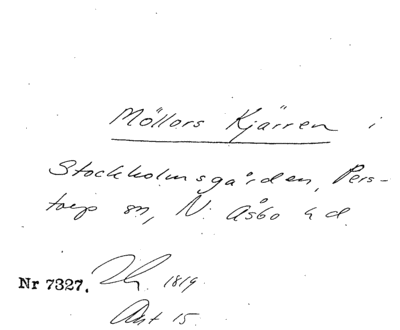 Möllars Kjärren i
Stockholmsgården, Pers-
torp sn, N. Åsbo hd.
Nr 7327. 1819
Akt 15.